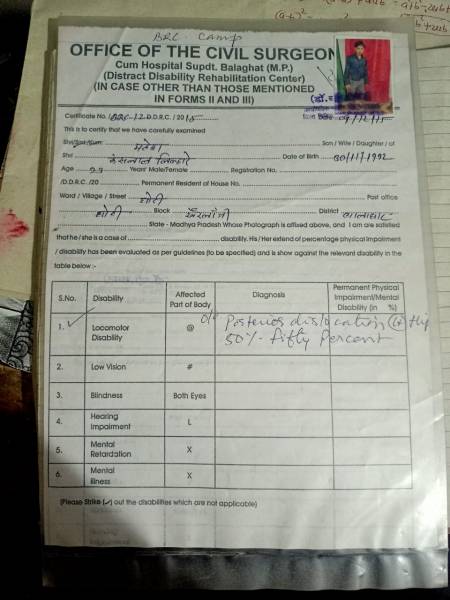 BRC Camp
OFFICE OF THE CIVIL SURGEON
Cum Hospital Supdt. Balaghat (M.P.)
(Distract Disability Rehabilitation Center)
(IN CASE OTHER THAN THOSE MENTIONED
IN FORMS II AND III)
Certificate No. BRC/2 D.D.R.C. /2015
This is to certify that we have carefully examined
Shri/Smt/Kum. महेश Son / Wife / Daughter / of
Shri Date of Birth 30/11/1992
Age 23 Years' Male/Female Registration No.
/D.D.R.C. /20 Permanent Resident of House No.
Ward / Village / Street Post office
Block District बालाघाट
State - Madhya Pradesh Whose Photograph is affixed above, and I am satisfied
that he / she is a case of disability. His/Her extend of percentage physical impairment
/ disability has been evaluated as per guidelines (to be specified) and is show against the relevant disability in the
table below :-
S.No. Disability Affected Part of Body Diagnosis Permanent Physical Impairment/Mental Disability (in %)
1. Locomotor Disability @ O/o Posterior dislocation (Lt) Hip
50% - Fifty Percent
2. Low Vision #
3. Blindness Both Eyes
4. Hearing Impairment L
5. Mental Retardation X
6. Mental Illness X
(Please Strike (✓) out the disabilities which are not applicable)